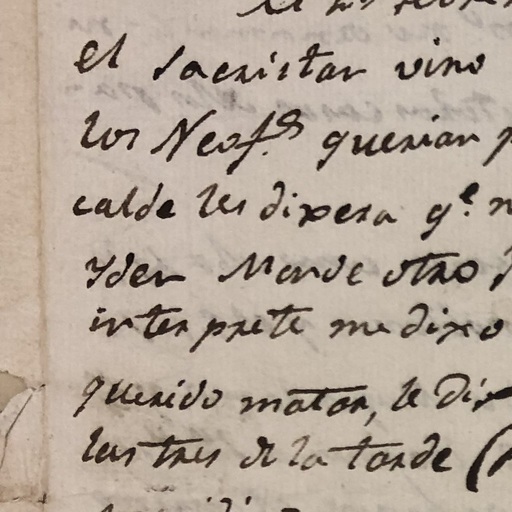 el sacristan vino
los Neof.s querian
calde les dixera q.e
Yden Mande otro
interprete me dixo
querido matar, le
las tres de la tarde (